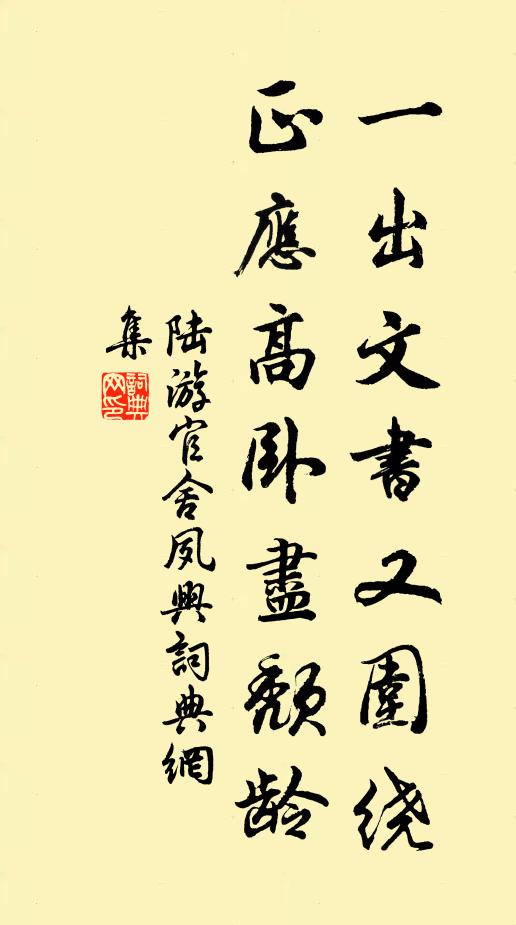 一出文書又圍绕
正應高卧盡頹龄
陆游官舍夙興詞典網
集
詞典網印